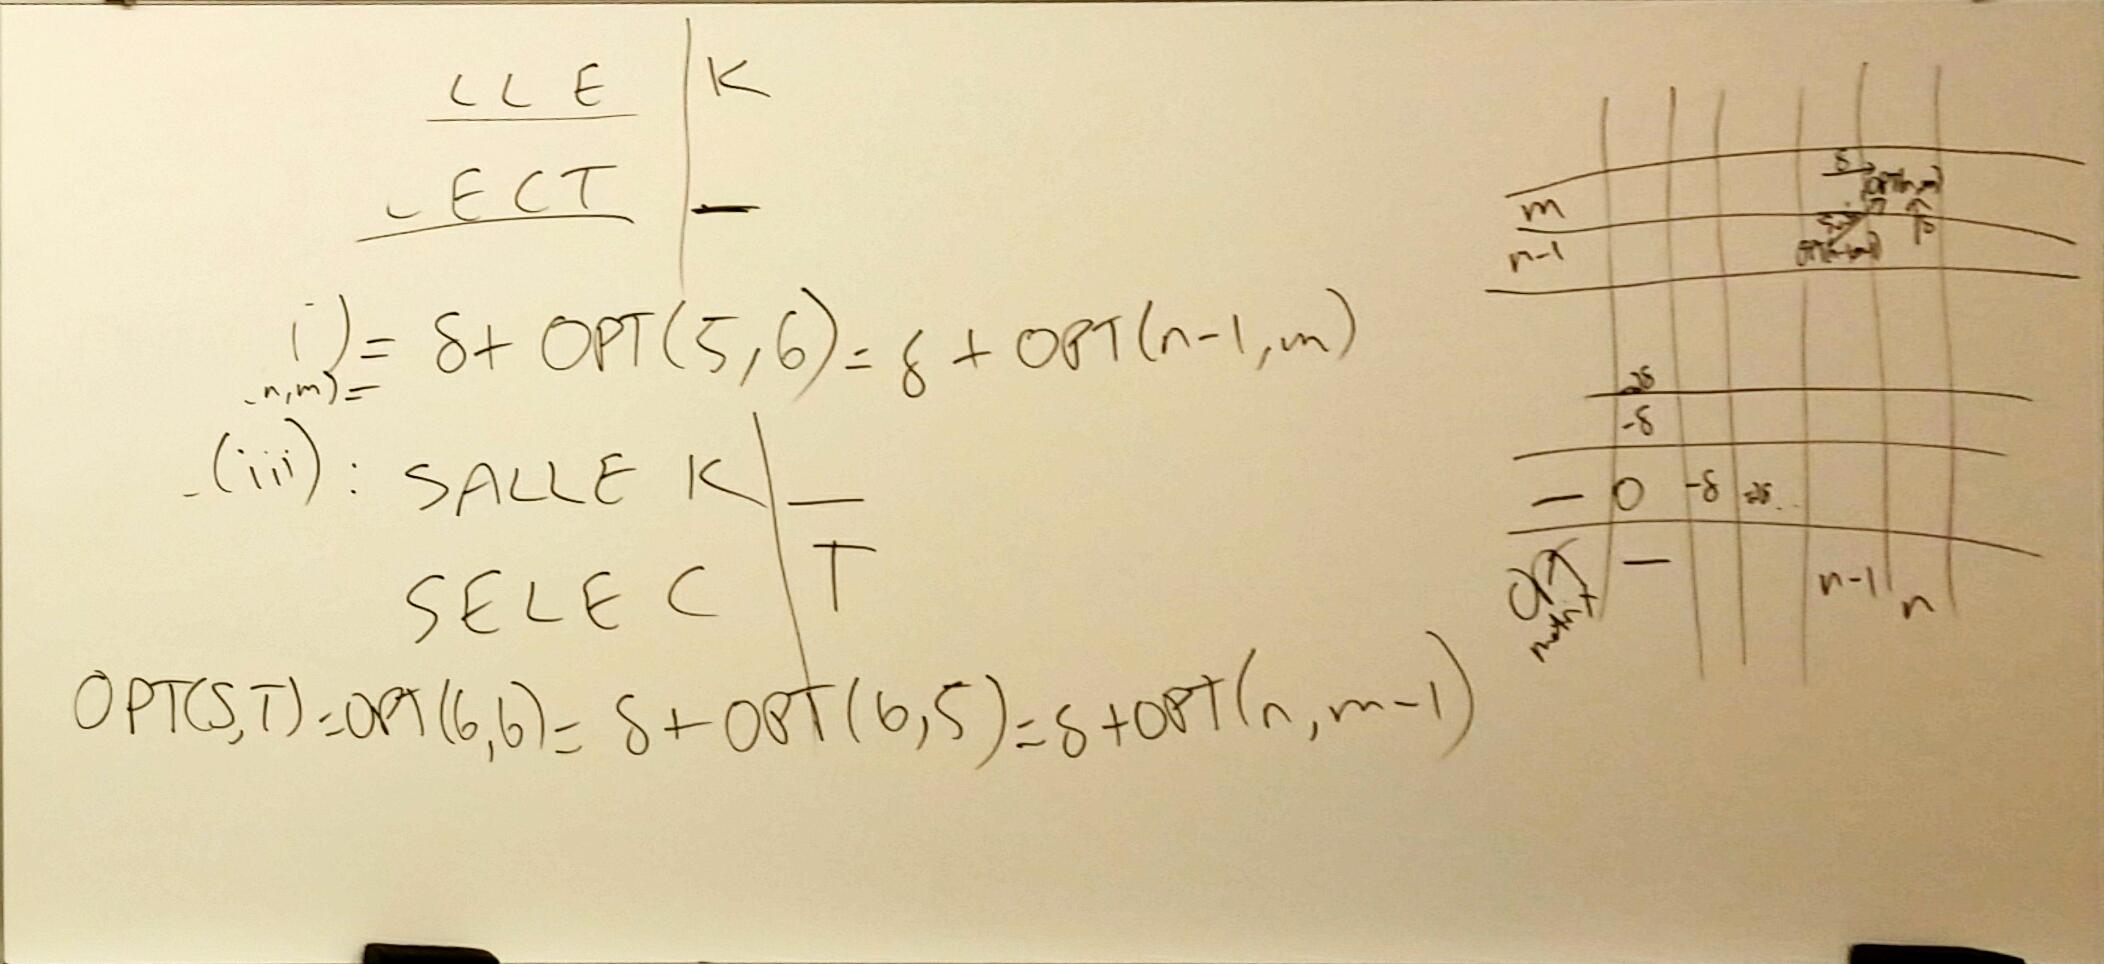 LLE | K
ECT | —
i) = δ + OPT(5,6) = δ + OPT(n-1,m)
n,m) =
(iii): SALLE K | —
SELE C | T
OPT(S,T) = OPT(6,6) = δ + OPT(6,5) = δ + OPT(n,m-1)
δ OPT(n,m)
m
δ
n-1
-2δ
-δ
— 0 -δ -2δ..
—
n-1 n